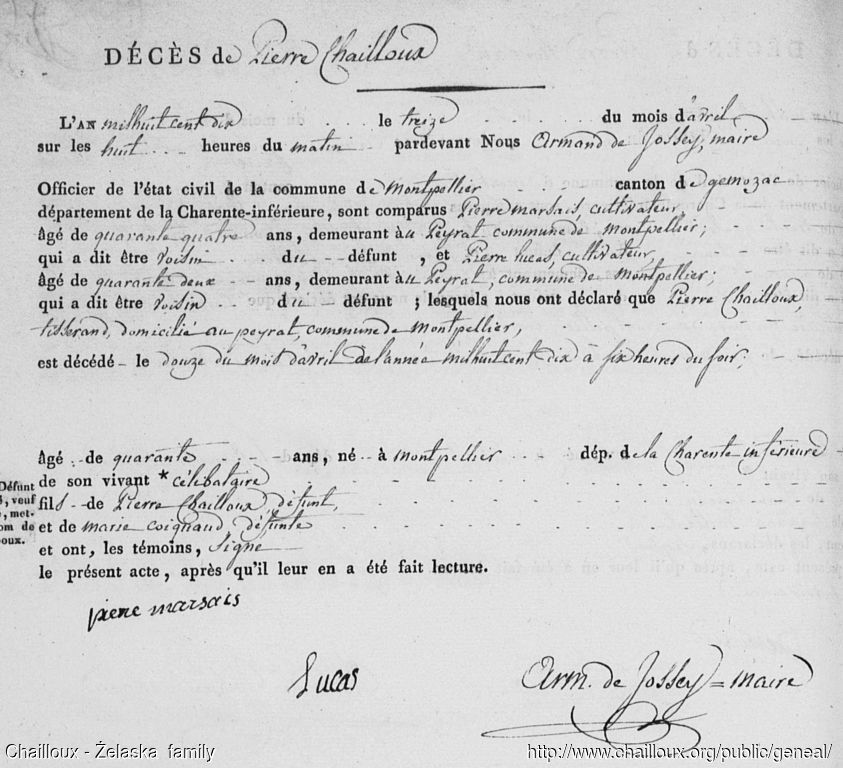 DÉCÈS de Pierre Chailloux
L'AN mil huit cent dix le treize du mois d'avril
sur les huit heures du matin pardevant Nous Armand de Jossey, maire
Officier de l'état civil de la commune de Montpellier canton de gemozac
département de la Charente-inférieure, sont comparus Pierre marsais, cultivateur
âgé de quarante quatre ans, demeurant au Peyrat commune de montpellier;
qui a dit être voisin du défunt, et Pierre lucas, cultivateur,
âgé de quarante deux ans, demeurant au Peyrat, commune de montpellier;
qui a dit être voisin du défunt ; lesquels nous ont déclaré que Pierre Chailloux,
tisserand, domicilié au peyrat, commune de montpellier,
est décédé le douze du mois d'avril de l'année mil huit cent dix à six heures du soir;
âgé de quarante ans, né à montpellier dép. de la Charente inférieure
de son vivant * célebataire
Défunt
, veuf
, met-
om de
oux.
fils de Pierre Chailloux, défunt,
et de marie coignaud, défunte
et ont, les témoins, signé
le présent acte, après qu'il leur en a été fait lecture.
pierre marsais
Lucas
Arm. de Jossey = maire
Chailloux - Żelaska family
http://www.chailloux.org/public/geneal/